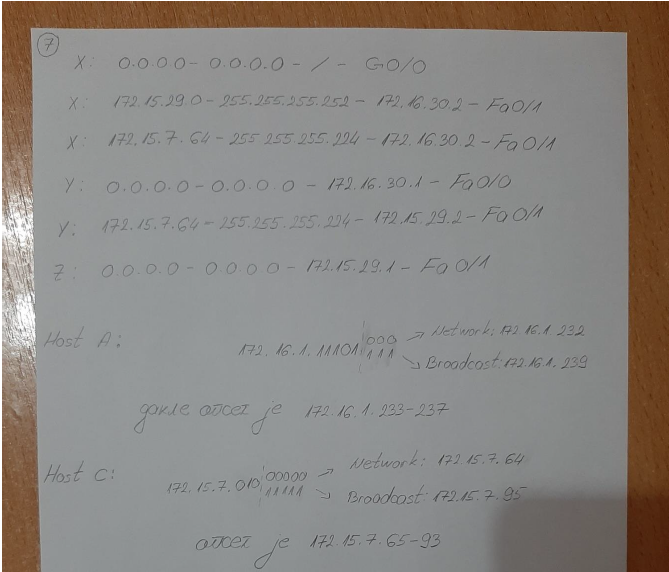 7
X: 0.0.0.0 - 0.0.0.0 - / - G0/0
X: 172.15.29.0 - 255.255.255.252 - 172.16.30.2 - Fa0/1
X: 172.15.7.64 - 255.255.255.224 - 172.16.30.2 - Fa0/1
Y: 0.0.0.0 - 0.0.0.0 - 172.16.30.1 - Fa0/0
Y: 172.15.7.64 - 255.255.255.224 - 172.15.29.2 - Fa0/1
Z: 0.0.0.0 - 0.0.0.0 - 172.15.29.1 - Fa0/1
Host A:
172.16.1.11101 000 → Network: 172.16.1.232
111 → Broadcast: 172.16.1.239
дакле опсег је 172.16.1.233-237
Host C:
172.15.7.010 00000 → Network: 172.15.7.64
11111 → Broadcast: 172.15.7.95
опсег је 172.15.7.65-93